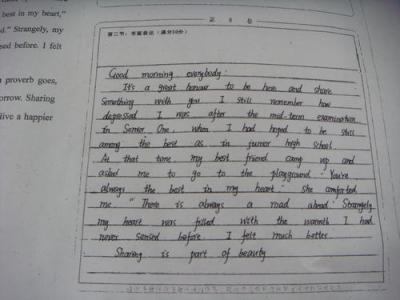 best in my heart,"
d." Strangely, my
sed before. I felt
proverb goes,
orrow. Sharing
live a happier
第二节：书面表达（满分30分）
Good morning everybody:
It's a great honour to be here and share
something with you I still remember how
depressed I was after the mid-term examination
in Senior One, when I had hoped to be still
among the best as in junior high school
At that time, my best friend came up and
asked me to go to the playground "You're
always the best in my heart" she comforted
me. "There is always a road ahead" Strangely
my heart was filled with the warmth I had
never sensed before I felt much better
Sharing is part of beauty